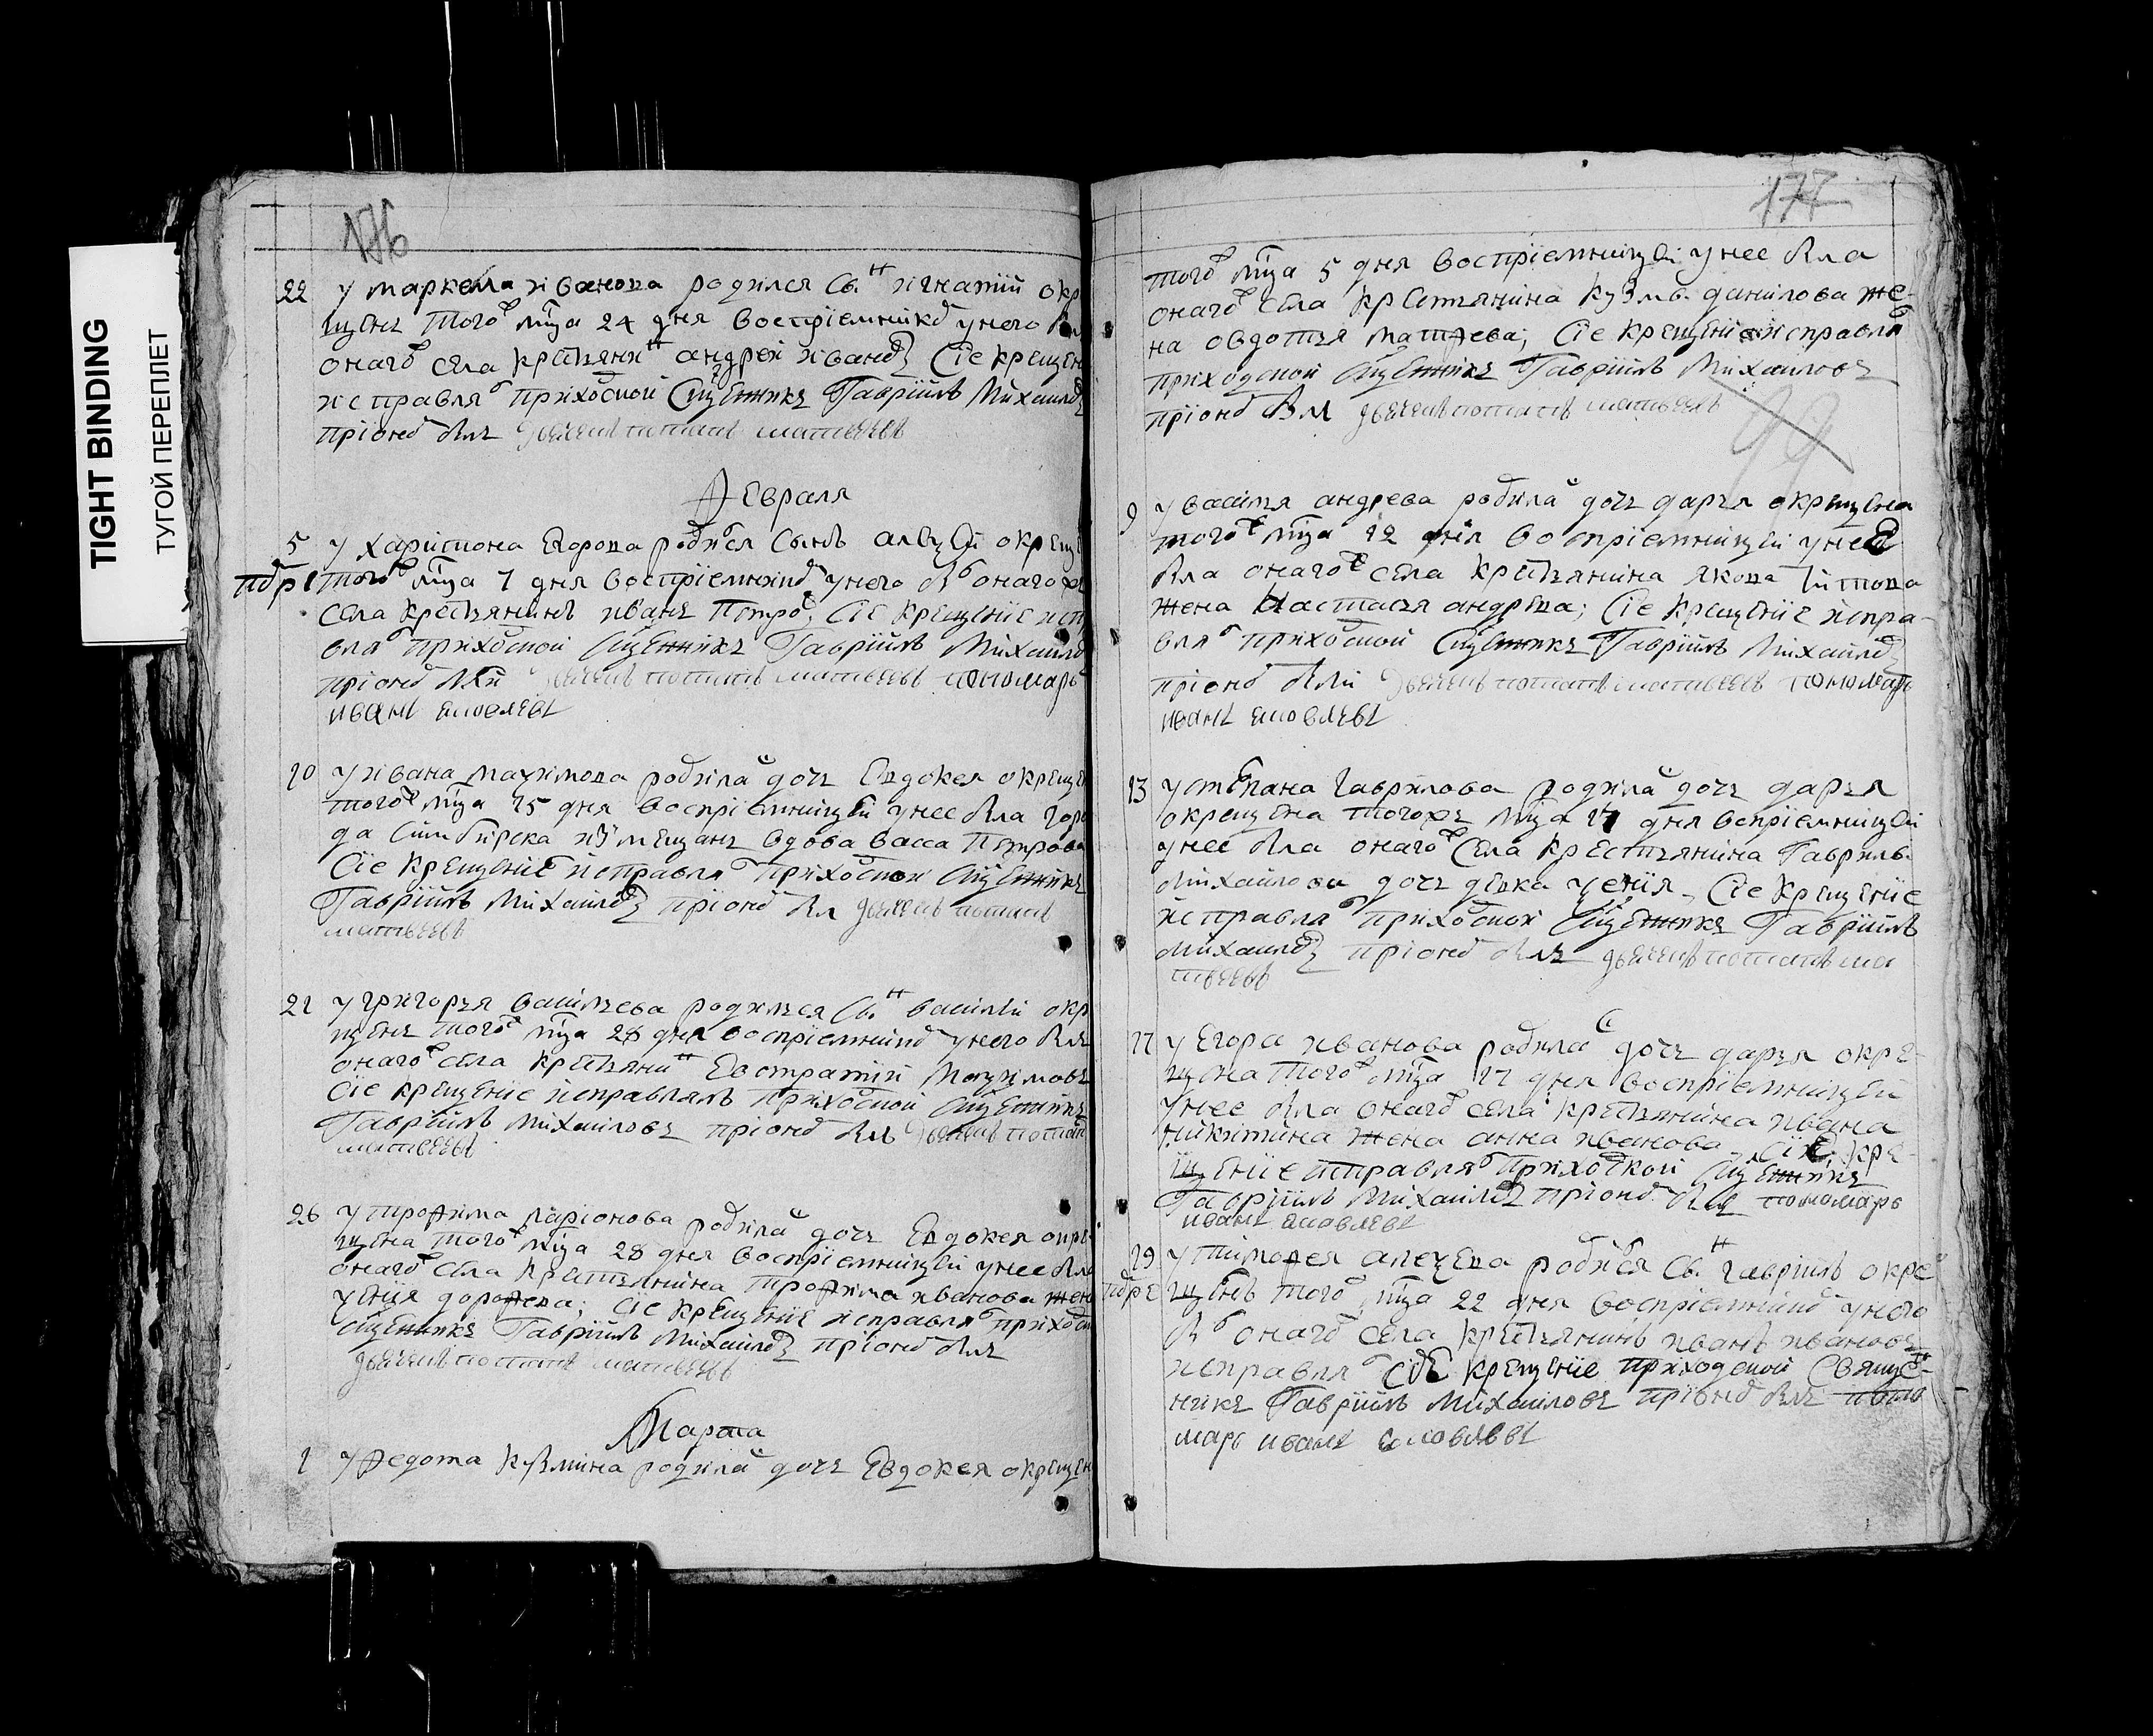 TIGHT BINDING
ТУГОЙ ПЕРЕПЛЕТ
176
22 у маркела иванова родился сынъ игнатiй окр
щенъ того мца 24 дня воспрiемникъ у него
онаго села крестьянинъ андрей ивановъ Сiе крещен
исправлялъ приходской Сщенникъ Гаврiилъ Михаиловъ
при ономъ былъ дьячекъ потапъ матвеевъ
Февраля
5 у харитона Егорова родился Сынъ алеѯей окреще
того мца 7 дня воспрiемникъ у него былъ онаго
села крестьянинъ иванъ Петровъ, Сiе крещенiе исп
влялъ приходской Сщенникъ Гаврiилъ Михаилов
при ономъ были дьячекъ потапъ матвеевъ пономарь
иванъ яковлевъ
10 у ивана маѯимова родилась дочь Евдокея окреще
того мца 15 дня воспрiемницей у нее была горо
да Симбирска из мещанъ вдова васса Петрова
Сiе крещенiе исправлялъ приходской Сщенникъ
Гаврiилъ Михаиловъ при ономъ былъ дьячекъ потапъ
матвеевъ
21 у григорья васильева родилься сынъ василей окр
щенъ того мца 28 дня воспрiемникъ у него былъ
онаго села крестьянинъ Евстратiй Маѯимовъ
Сiе крещенiе исправлялъ приходской Сщенникъ
Гаврiилъ Михаиловъ при ономъ былъ дьячекъ потапъ
матвеевъ
26 у трофима ларiонова родилась дочь Евдокея окре
щена того мца 28 дня воспрiемницей у нее была
онаго села крестьянина трофима иванова жена
дорофева; Сiе крещенiе исправлялъ приходск
Сщенникъ Гаврiилъ Михаиловъ при ономъ былъ
дьячекъ потапъ матвеевъ
Марта
1 у федота кузмина родилась дочь Евдокея окрещен
177
того мца 5 дня воспрiемницей у нее была
онаго села крестьянина кузмы данилова же-
на овдотья матфева; Сiе крещенiе исправлялъ
приходской Сщенникъ Гаврiилъ Михаиловъ
при ономъ былъ дьячекъ потапъ матвеевъ
9 у василья андрева родилась дочь дарья окрещена
того мца 12 дня воспрiемницей у нее
была онаго села крестьянина якова титова
жена Настасья андрева; Сiе крещенiе испра-
влялъ приходской Сщенникъ Гаврiилъ Михаиловъ
при ономъ были дьячекъ потапъ матвеевъ пономарь
иванъ яковлевъ
13 у степана гаврилова родилась дочь дарья
окрещена тогожъ мца 17 дня воспрiемницей
у нее была онаго села крестьянина Гаврилы
Михаилова дочь девка Сiе крещенiе
исправлялъ приходской Сщенникъ Гаврiилъ
Михаиловъ при ономъ былъ дьячекъ потапъ ма
твеевъ
17 у Егора иванова родилась дочь дарья окре-
щена того мца 17 дня воспрiемницей
у нее была онаго села крестьянина ивана
никитина жена анна иванова Сiе кре-
щенiе исправлялъ приходской Сщенникъ
Гаврiилъ Михаиловъ при ономъ былъ пономарь
иванъ яковлевъ
19 у тимофея алеѯева родился сынъ гаврiилъ окре
щенъ того мца 22 дня воспрiемникъ у него
былъ онаго села крестьянинъ иванъ ивановъ
исправлялъ Сiе крещенiе приходской Священ-
никъ Гаврiилъ Михаиловъ при ономъ былъ поно
марь иванъ яковлевъ